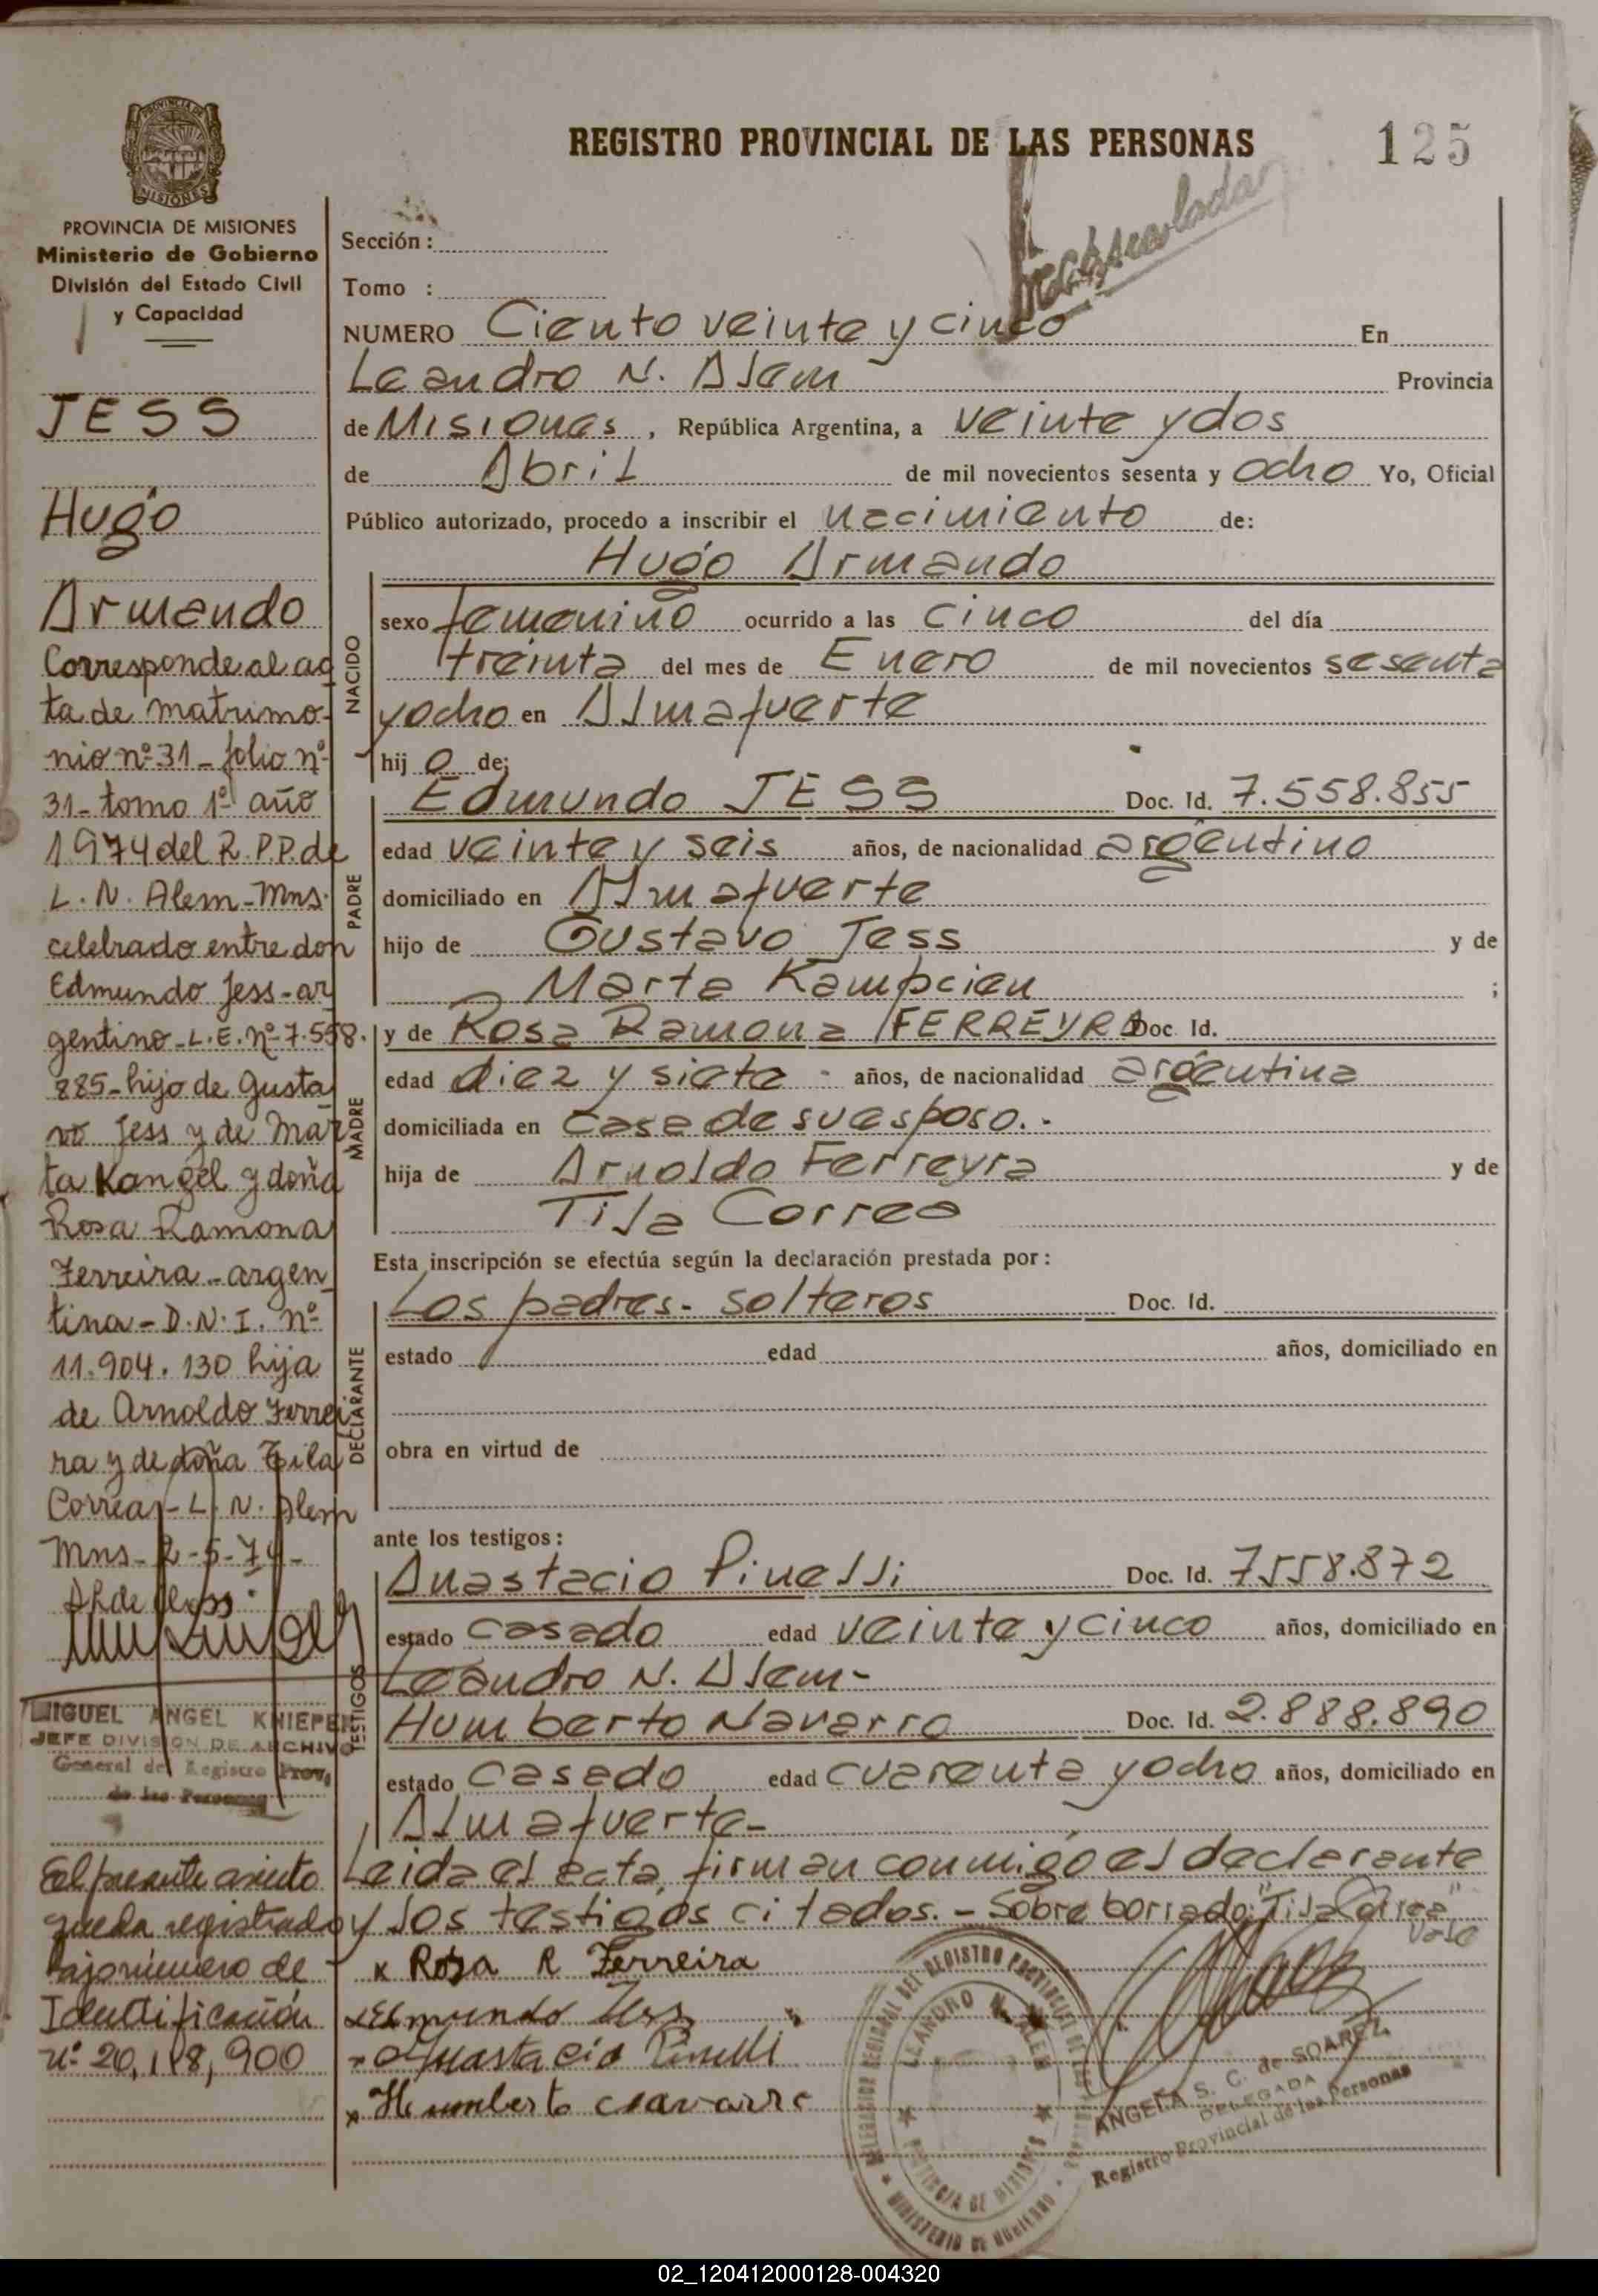 REGISTRO PROVINCIAL DE LAS PERSONAS
125
PROVINCIA DE MISIONES
PROVINCIA DE MISIONES
Ministerio de Gobierno
División del Estado Civil
y Capacidad
JESS
Hugo
Armando
Corresponde al ac
ta de matrimo-
nio nº 31 - folio nº
31 - tomo 1º año
1974 del R.P.P. de
L. N. Alem - Mns.
celebrado entre don
Edmundo Jess - ar
gentino - L.E. Nº 7.558.
885 - hijo de Gusta
vo Jess y de Mar
ta Kangel y doña
Rosa Ramona
Ferreira - argen
tina - D.N.I. nº
11.904.130 hija
de Arnoldo Ferrei
ra y de doña Tila
Correa - L. N. Alem
Mns - 2-5-74 -
MIGUEL ANGEL KNIEPER
JEFE DIVISION DE ARCHIVO
General del Registro Prov.
de las Personas
El presente asiento
queda registrado
bajo número de
Identificación
nº 20,118,900
Sección :
Tomo :
NUMERO Ciento veinte y cinco En
Leandro N. Alem Provincia
de Misiones, República Argentina, a veinte y dos
de Abril de mil novecientos sesenta y ocho Yo, Oficial
Público autorizado, procedo a inscribir el nacimiento de:
Hugo Armando
NACIDO
sexo femenino ocurrido a las cinco del día
treinta del mes de Enero de mil novecientos sesenta
y ocho en Almafuerte
hij o de:
PADRE
Edmundo JESS Doc. Id. 7.558.855
edad veinte y seis años, de nacionalidad argentino
domiciliado en Almafuerte
hijo de Gustavo Jess y de
Marta Kampcien ;
MADRE
y de Rosa Ramona FERREYRA Doc. Id.
edad diez y siete - años, de nacionalidad argentina
domiciliada en casa de su esposo.-
hija de Arnoldo Ferreyra y de
Tila Correa
Esta inscripción se efectúa según la declaración prestada por :
DECLARANTE
Los padres - solteros Doc. Id.
estado edad años, domiciliado en
obra en virtud de
ante los testigos :
TESTIGOS
Anastacio Pinelli Doc. Id. 7558.872
estado casado edad veinte y cinco años, domiciliado en
Leandro N. Alem -
Humberto Navarro Doc. Id. 2.888.890
estado casado edad cuarenta y ocho años, domiciliado en
Almafuerte -
Leida el acta, firman conmigo el declarante
y los testigos citados. - Sobre borrado: "Tila Correa"
Vale
x Rosa R Ferreira
x Edmundo Jess
x Anastacio Pinelli
x Humberto Navarro
DELEGACION REGIONAL DEL REGISTRO PROVINCIAL DE LAS PERSONAS
LEANDRO N. ALEM
PROVINCIA DE MISIONES
MINISTERIO DE GOBIERNO
ANGELA S. C. de SOAREZ
DELEGADA
Registro Provincial de las Personas
02_120412000128-004320